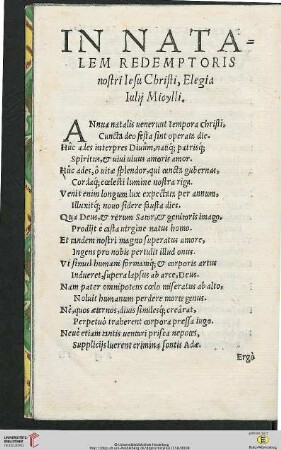 IN NATA-
LEM REDEMPTORIS
nostri Iesu Christi, Elegia
Iulij Micylli.
ANnua natalis uenerunt tempora Christi,
Cuncta deo festa sint operata die.
Húc ades interpres Diuûm, natiq́; patrisq́;
Spiritus, & uiui uiuus amoris amor.
Húc ades, ô uitæ splendor, qui cuncta gubernas,
Cordaq́; cœlesti lumine nostra riga.
Venit enim longum lux expectata per annum,
Illuxitq́; nouo sidere fausta dies.
Qua Deus, & rerum Sator, & genitoris imago,
Prodijt è casta uirgine natus homo.
Et tandem nostri magno superatus amore,
Ingens pro nobis pertulit illud onus.
Vt simul humanam formamq́; & corporis artus
Indueret, supera lapsus ab arce, Deus.
Nam pater omnipotens cœlo miseratus ab alto,
Noluit humanum perdere morte genus.
Néue quos æternos, diuis similesq́; creârat,
Perpetuò traherent corpora pressa iugo.
Neue etiam cuncti uenturi prisca nepotes,
Supplicijs luerent crimina sontis Adæ.
Ergò
UNIVERSITÄTS-
BIBLIOTHEK
HEIDELBERG
© Universitätsbibliothek Heidelberg